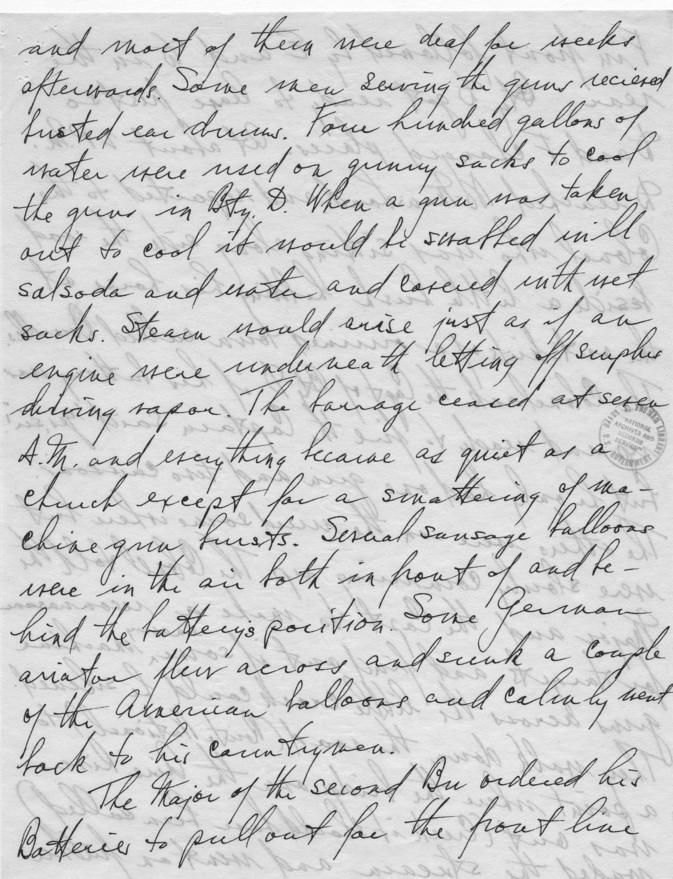 and most of them were deaf for weeks
afterwards. Some men serving the guns recieved
busted ear drums. Four hundred gallons of
water were used on gunny sacks to cool
the guns in Bty. D. When a gun was taken
out to cool it would be swabbed with
salsoda and water and covered with wet
sacks. Steam would arise just as if an
engine were underneath letting off sulphur
driving vapor. The barrage ceased at seven
A.M. and everything became as quiet as a
church except for a smattering of ma-
chine gun bursts. Several sausage balloons
were in the air both in front of and be-
hind the battery's position. Some German
aviator flew across and sunk a couple
of the American balloons and calmly went
back to his countrymen.
The Major of the second Bn ordered his
Batteries to pull out for the front line
NATIONAL
ARCHIVES AND
RECORDS